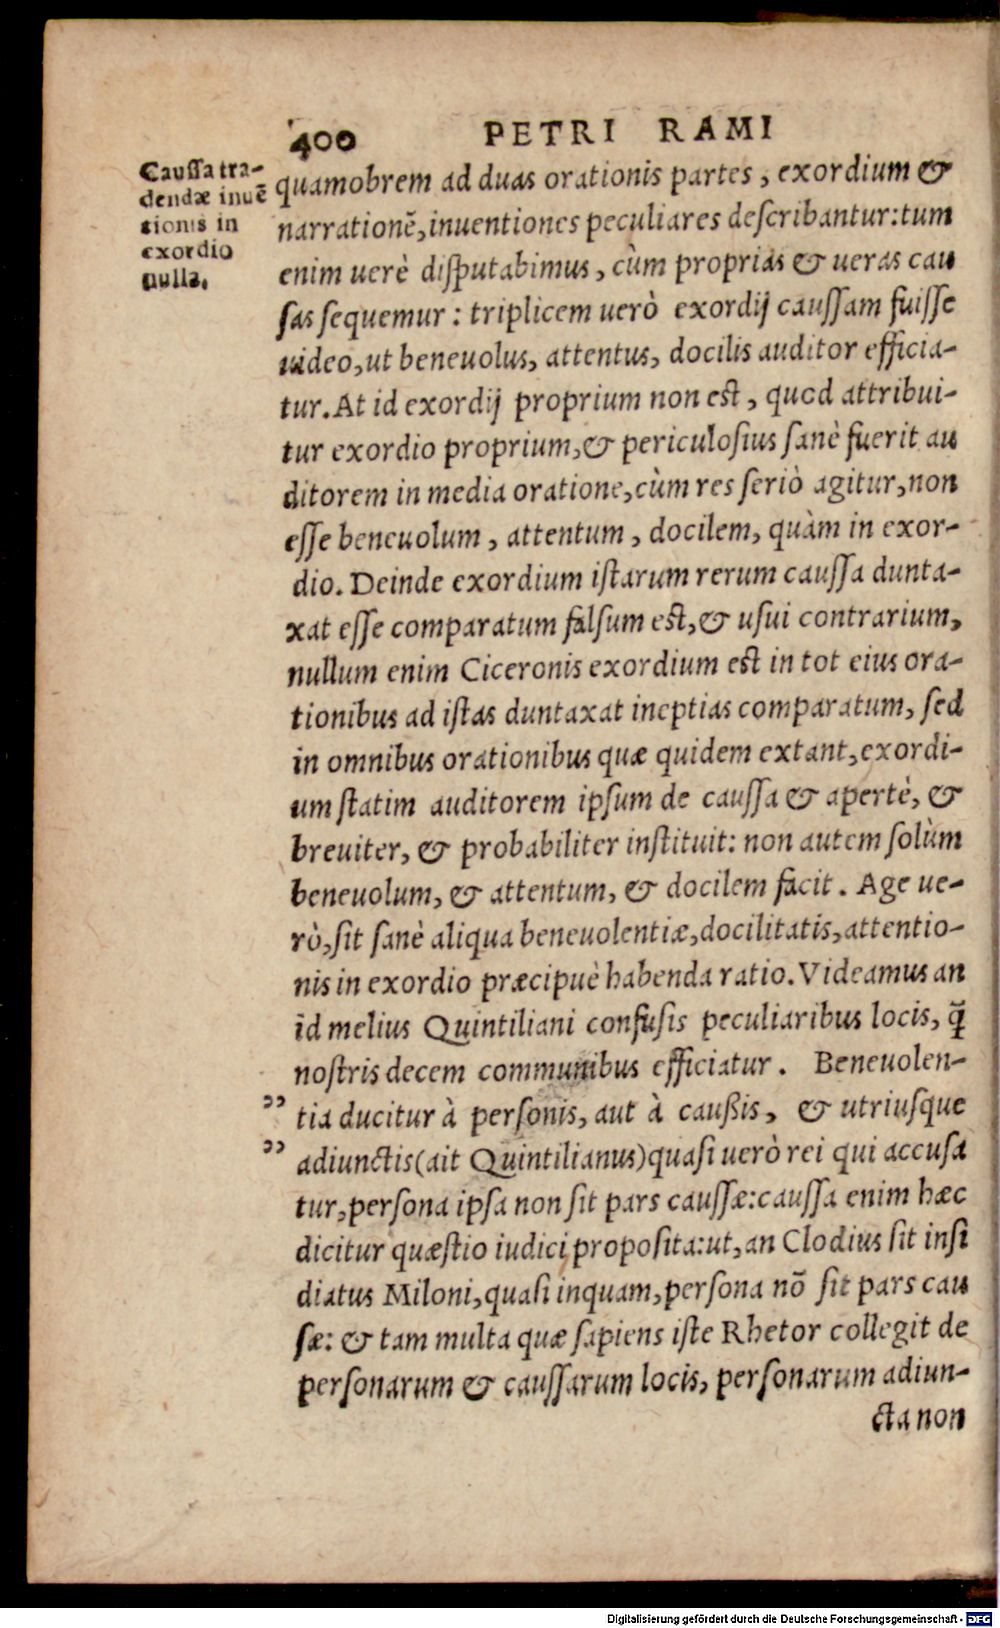 400 PETRI RAMI
Caussa tra-
dendæ inuẽ
tionis in
exordio
nulla.
quamobrem ad duas orationis partes, exordium &
narrationẽ, inuentiones peculiares describantur: tum
enim uerè disputabimus, cùm proprias & ueras cau
sas sequemur: triplicem uerò exordij caussam fuisse
uideo, ut beneuolus, attentus, docilis auditor efficia-
tur. At id exordij proprium non est, quod attribui-
tur exordio proprium, & periculosius sanè fuerit au
ditorem in media oratione, cùm res seriò agitur, non
esse beneuolum, attentum, docilem, quàm in exor-
dio. Deinde exordium istarum rerum caussa dunta-
xat esse comparatum falsum est, & usui contrarium,
nullum enim Ciceronis exordium est in tot eius ora-
tionibus ad istas duntaxat ineptias comparatum, sed
in omnibus orationibus quæ quidem extant, exordi-
um statim auditorem ipsum de caussa & apertè, &
breuiter, & probabiliter instituit: non autem solùm
beneuolum, & attentum, & docilem facit. Age ue-
rò, sit sanè aliqua beneuolentiæ, docilitatis, attentio-
nis in exordio præcipuè habenda ratio. Videamus an
id melius Quintiliani confusis peculiaribus locis, q̃
nostris decem communibus efficiatur. Beneuolen-
" tia ducitur à personis, aut à caußis, & utriusque
" adiunctis (ait Quintilianus) quasi uerò rei qui accusa
tur, persona ipsa non sit pars caussæ: caussa enim hæc
dicitur quæstio iudici proposita: ut, an Clodius sit insi
diatus Miloni, quasi inquam, persona nõ sit pars cau
sæ: & tam multa quæ sapiens iste Rhetor collegit de
personarum & caussarum locis, personarum adiun-
cta non
Digitalisierung gefördert durch die Deutsche Forschungsgemeinschaft - DFG